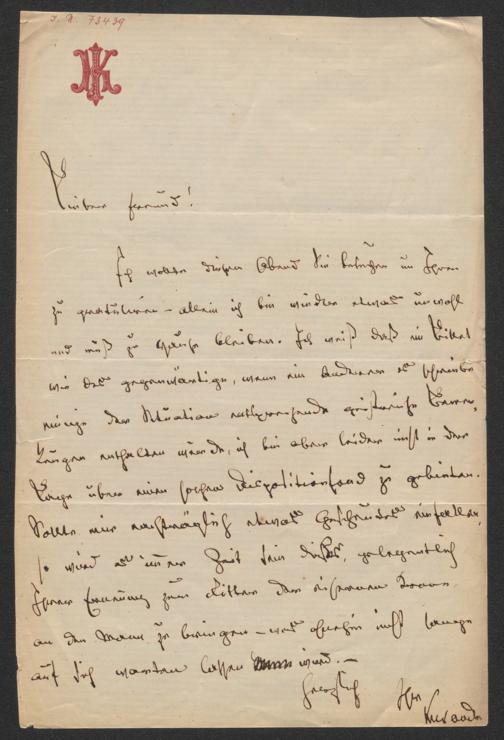 J. N. 73439
JK
Lieber Freund!
Ich wollte diesen Abend Sie besuchen um Ihnen
zu gratuliren – allein ich bin wieder etwas unwohl
und muß zu Hause bleiben. Ich weiß daß ein Billet
wie das gegenwärtige, wenn ein Anderer es schriebe
einige der Situation entsprechende geistreiche Bemer-
kungen enthalten würde, ich bin aber leider nicht in der
Lage über einen solchen Dispositionsfond zu gebieten.
Sollte mir nachträglich etwas Gescheudtes einfallen,
so wird es immer Zeit sein dieses, gelegentlich
Ihrer Ernennung zum Ritter der eisernen Krone
an den Mann zu bringen – was ohnehin nicht lange
auf sich warten lassen wird. –
Herzlich Ihr